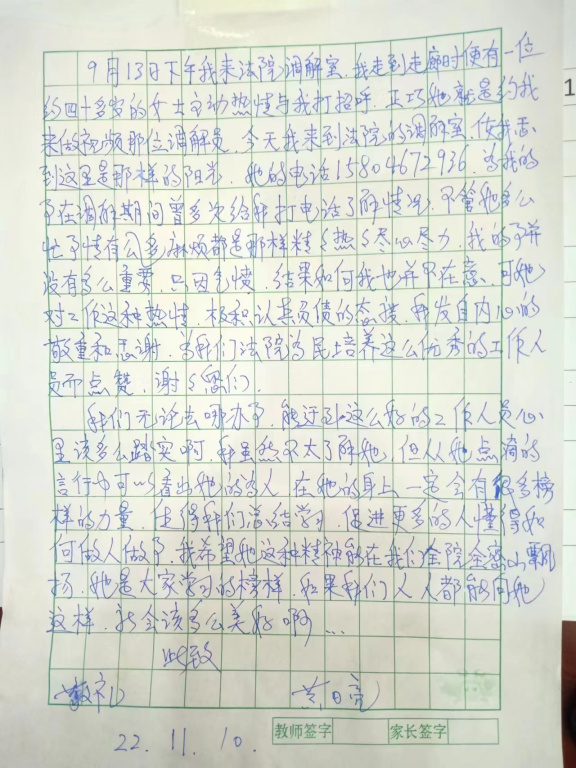 9月13日下午我来法院调解室,我走到走廊时便有一位
约四十多岁的女士主动热情与我打招呼,正巧她就是约我
来做视频那位调解员,今天我来到法院的调解室,使我感
到这里是那样的阳光,她的电话15804672936,为我的
事在调解期间曾多次给我打电话了解情况,不管她多么
忙事情有么多麻烦都是那样精々热々尽心尽力,我的事并
没有多么重要,只因气愤,结果如何我也并不在意,可她
对工作这种热情,极积认真负债的态接,我发自内心的
敬重和感谢,为我们法院为民培养这么优秀的工作人
员而点赞,谢々您们.
我们无论去哪办事,能迁到这么好的工作人员心
里该多么踏实啊,我虽然不太了解她,但从她点滴的
言行中可以看出她的为人,在她的身上一定会有很多榜
样的力量,值得我们总结学习,促进更多的人懂得如
何做人做事,我希望她这种精神能在我们全院全密山飘
扬,她是大家学习的榜样,如果我们人人都能向她
这样,社会该多么美好啊...
此致
敬礼
22.11.10.
教师签字 家长签字
1